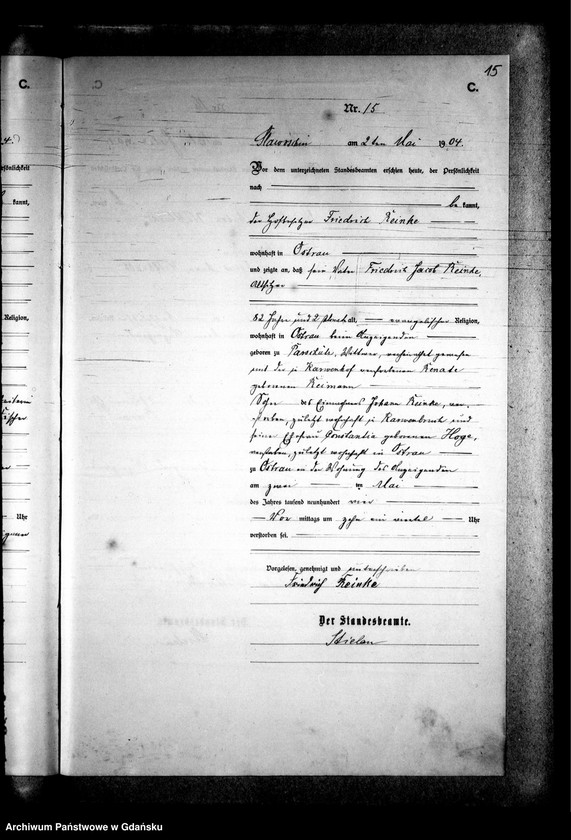 15
C.
C.
Nr. 15
am 2ten Mai 1904.
Vor dem unterzeichneten Standesbeamten erschien heute, der Persönlichkeit
nach
be kannt,
der Hofbesitzer Friedrich Reinke
wohnhaft in Ostrau
und zeigte an, daß sein Vater Friedrich Jacob Reinke,
Altsitzer
82 Jahre und 2 Monate alt, evangelischer Religion,
wohnhaft in Ostrau beim Anzeigenden
geboren zu Parschütz, Wittwer, verheirathet gewesen
mit der in Karwenhof verstorbenen Renate
geborenen Reimann
Sohn des Einwohners Johann Reinke, ver-
storben, zuletzt wohnhaft in Karwenbruch und
seiner Ehefrau Constantia geborenen Hoge,
verstorben, zuletzt wohnhaft in Ostrau
zu Ostrau in der Wohnung des Anzeigenden
am zwei ten Mai
des Jahres tausend neunhundert vier
Vor mittags um zehn ein viertel Uhr
verstorben sei.
Vorgelesen, genehmigt und unterschrieben
Friedrich Reinke
Der Standesbeamte.
Religion,
kannt,
Uhr
Archiwum Państwowe w Gdańsku